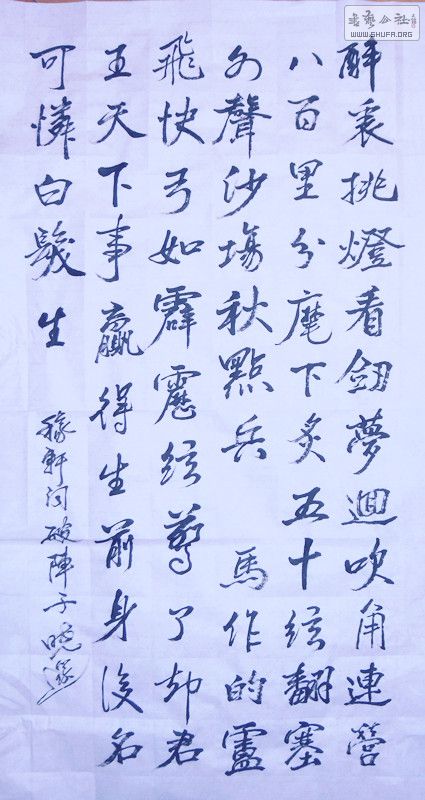 書藝公社
WWW.SHUFA.ORG
醉裏挑燈看劍夢迴吹角連營
八百里分麾下炙五十絃翻塞
外聲沙塲秋點兵 馬作的盧
飛快弓如霹靂絃驚了却君
王天下事贏得生前身後名
可憐白髮生
稼軒詞破陣子曉